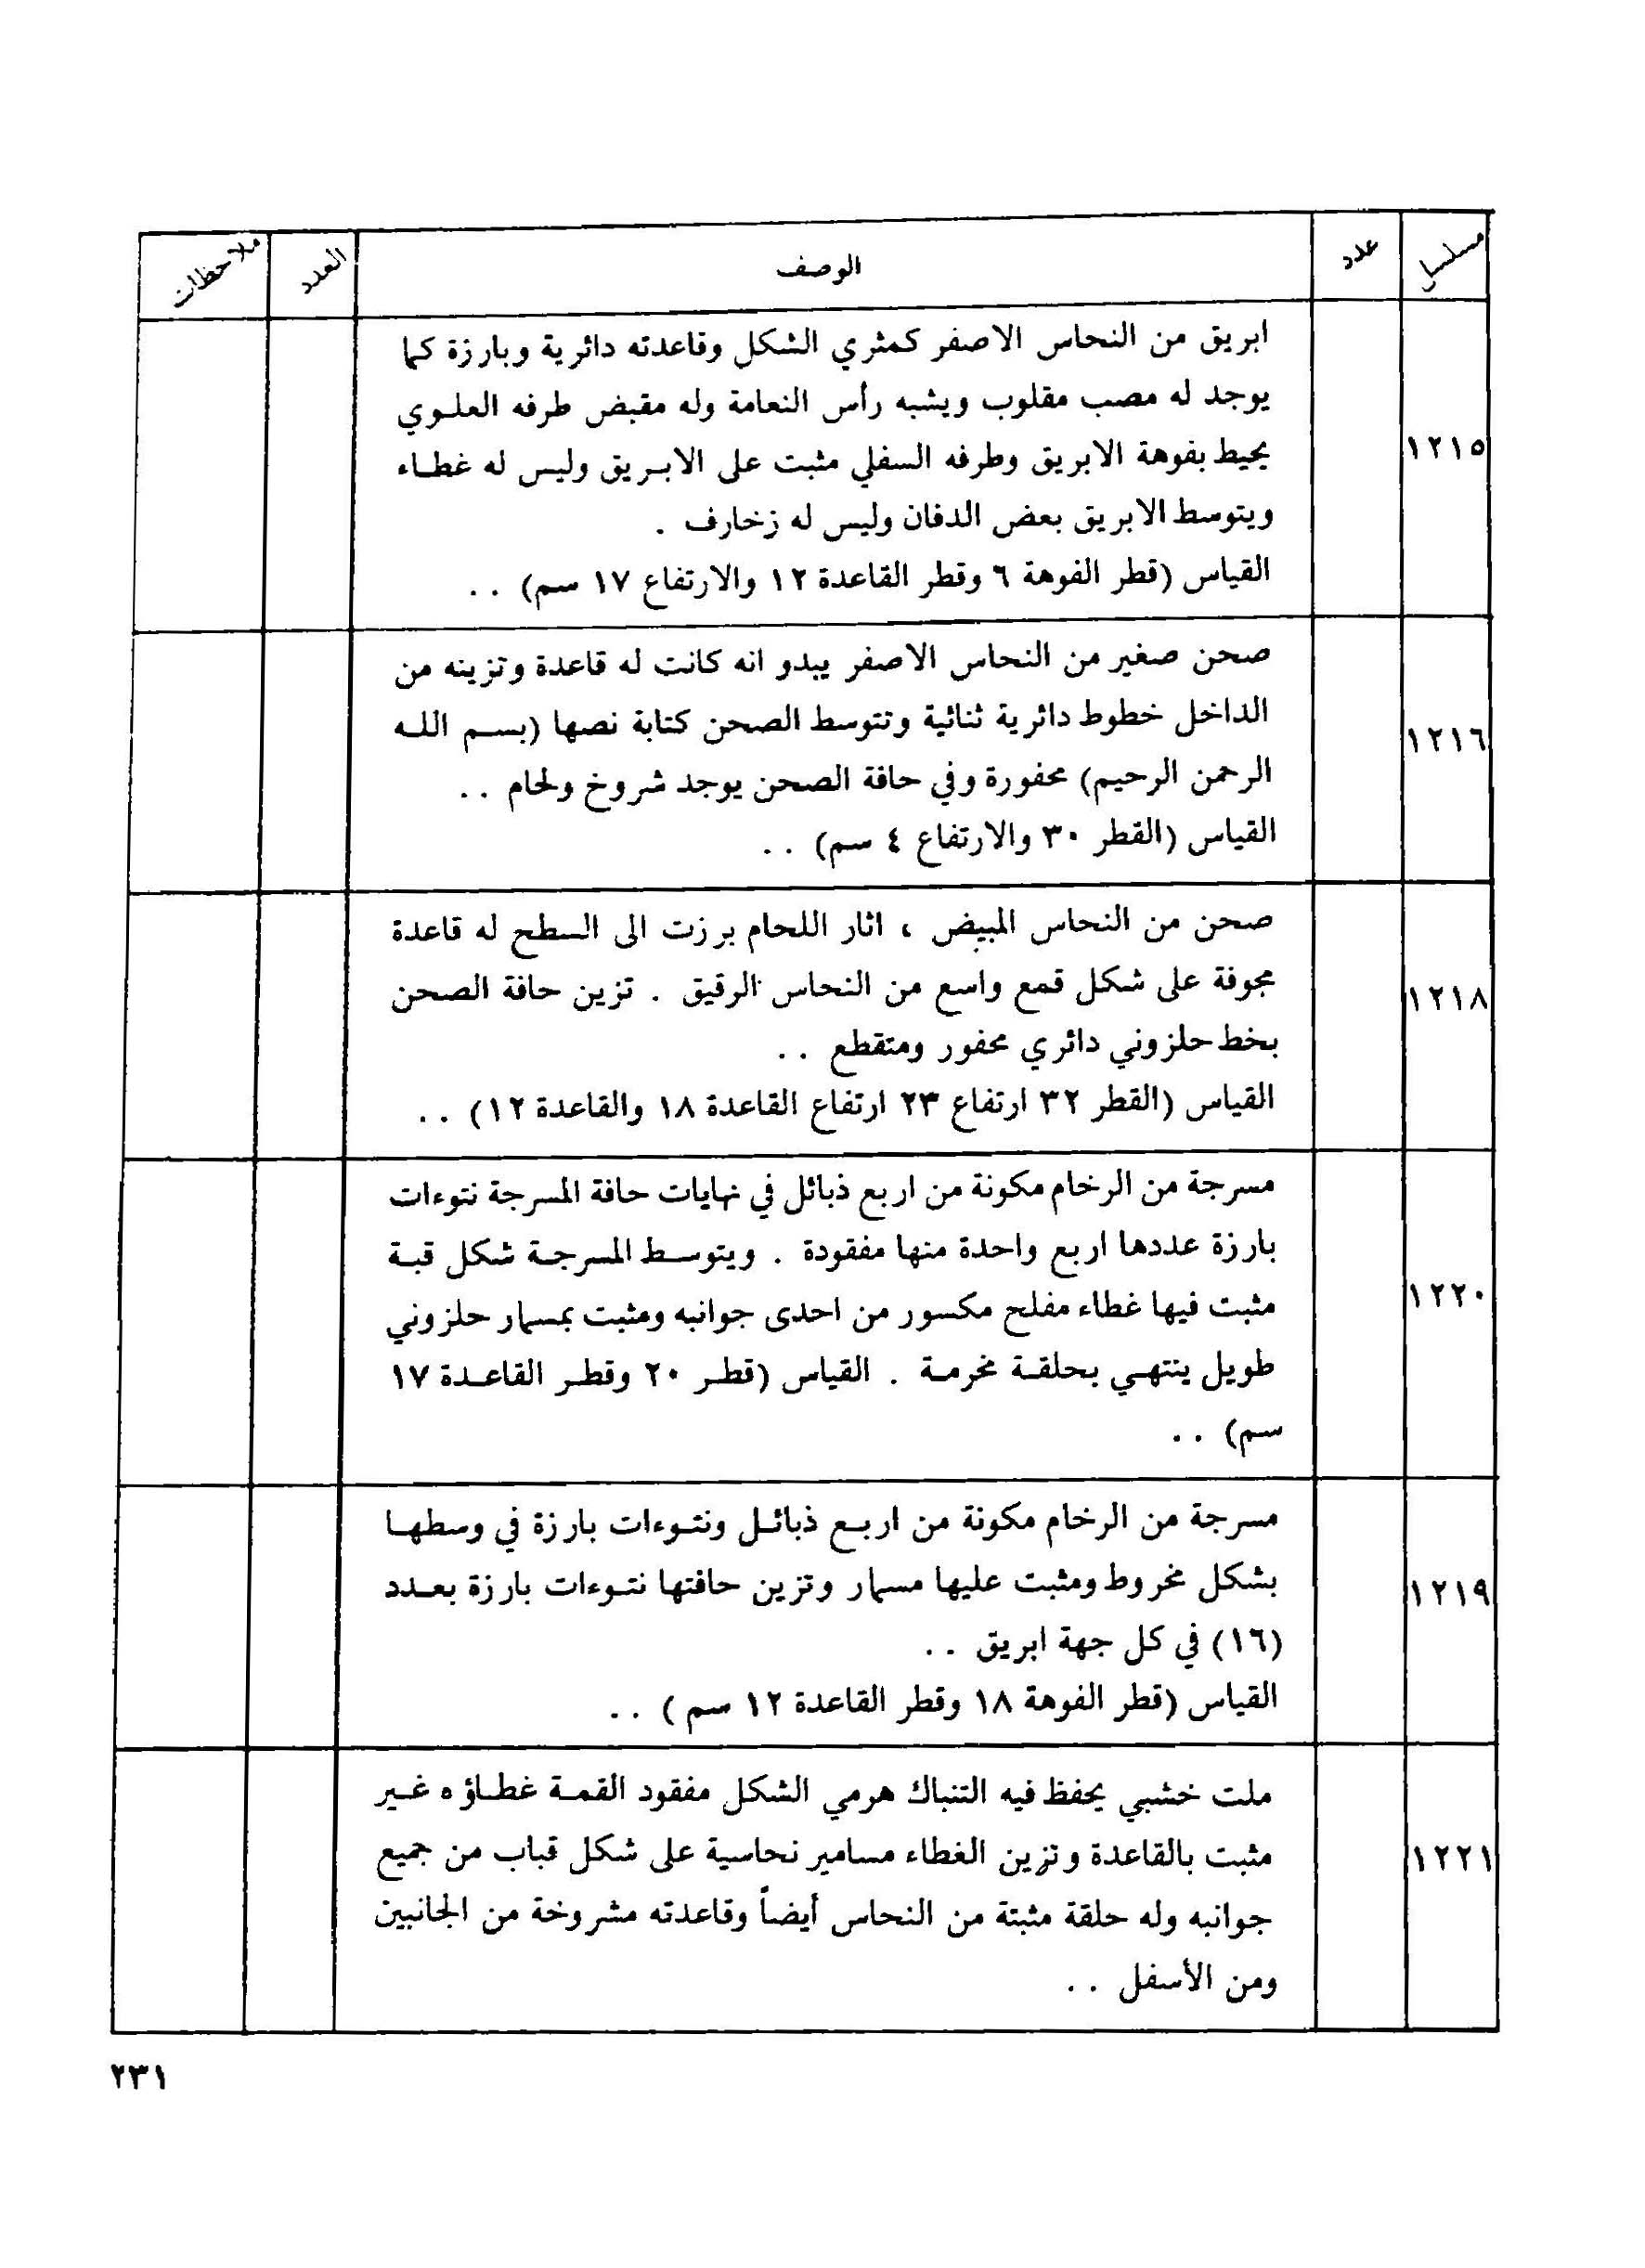 مسلسل عدد الوصف العدد ملاحظات
١٢١٥
ابريق من النحاس الاصفر كمثري الشكل وقاعدته دائرية وبارزة كما
يوجد له مصب مقلوب ويشبه رأس النعامة وله مقبض طرفه العلوي
يحيط بفوهة الابريق وطرفه السفلي مثبت على الابريق وليس له غطاء
ويتوسط الابريق بعض الدفان وليس له زخارف .
القياس (قطر الفوهة ٦ وقطر القاعدة ١٢ والارتفاع ١٧ سم) . .
١٢١٦
صحن صغير من النحاس الاصفر يبدو انه كانت له قاعدة وتزينه من
الداخل خطوط دائرية ثنائية وتتوسط الصحن كتابة نصها (بسم الله
الرحمن الرحيم) محفورة وفي حافة الصحن يوجد شروخ ولحام . .
القياس (القطر ٣٠ والارتفاع ٤ سم) . .
١٢١٨
صحن من النحاس المبيض ، اثار اللحام برزت الى السطح له قاعدة
مجوفة على شكل قمع واسع من النحاس الرقيق . تزين حافة الصحن
بخط حلزوني دائري محفور ومتقطع . .
القياس (القطر ٣٢ ارتفاع ٢٣ ارتفاع القاعدة ١٨ والقاعدة ١٢) . .
١٢٢٠
مسرجة من الرخام مكونة من اربع ذبائل في نهايات حافة المسرجة نتوءات
بارزة عددها اربع واحدة منها مفقودة . ويتوسط المسرجة شكل قبة
مثبت فيها غطاء مفلح مكسور من احدى جوانبه ومثبت بمسمار حلزوني
طويل ينتهي بحلقة مخرمة . القياس (قطر ٢٠ وقطر القاعدة ١٧
سم) . .
١٢١٩
مسرجة من الرخام مكونة من اربع ذبائل ونتوءات بارزة في وسطها
بشكل مخروط ومثبت عليها مسمار وتزين حافتها نتوءات بارزة بعدد
(١٦) في كل جهة ابريق . .
القياس (قطر الفوهة ١٨ وقطر القاعدة ١٢ سم ) . .
١٢٢١
ملت خشبي يحفظ فيه التنباك هرمي الشكل مفقود القمة غطاؤه غير
مثبت بالقاعدة وتزين الغطاء مسامير نحاسية على شكل قباب من جميع
جوانبه وله حلقة مثبتة من النحاس أيضاً وقاعدته مشروخة من الجانبين
ومن الأسفل . .
٢٣١